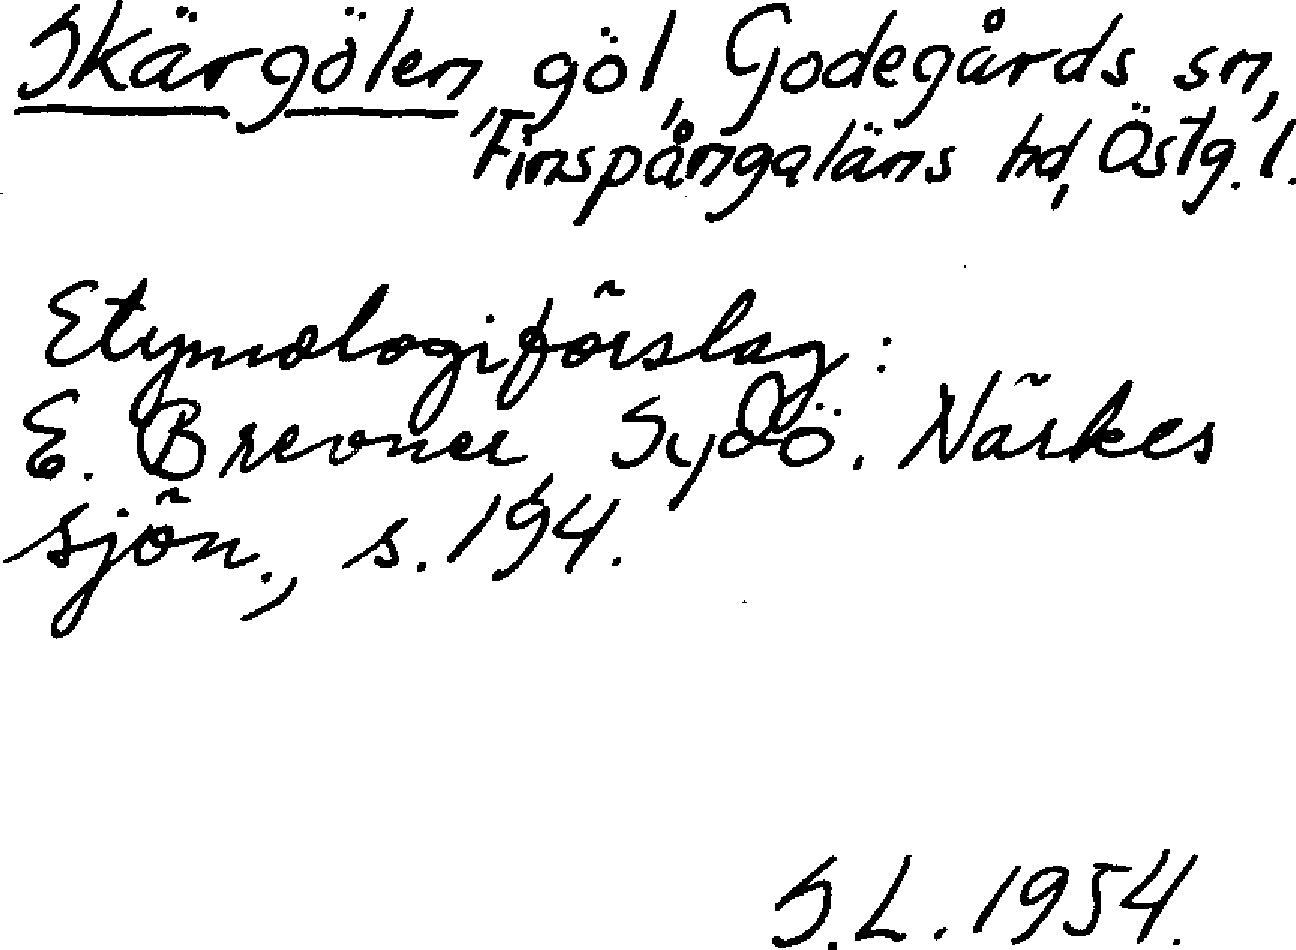 Skärgölen, göl, Godegårds sn,
Finspångaläns hd, Östg. l.
Etymologiförslag:
E. Brevner, Sydö. Närkes
sjön., s. 194.
S.L. 1954.